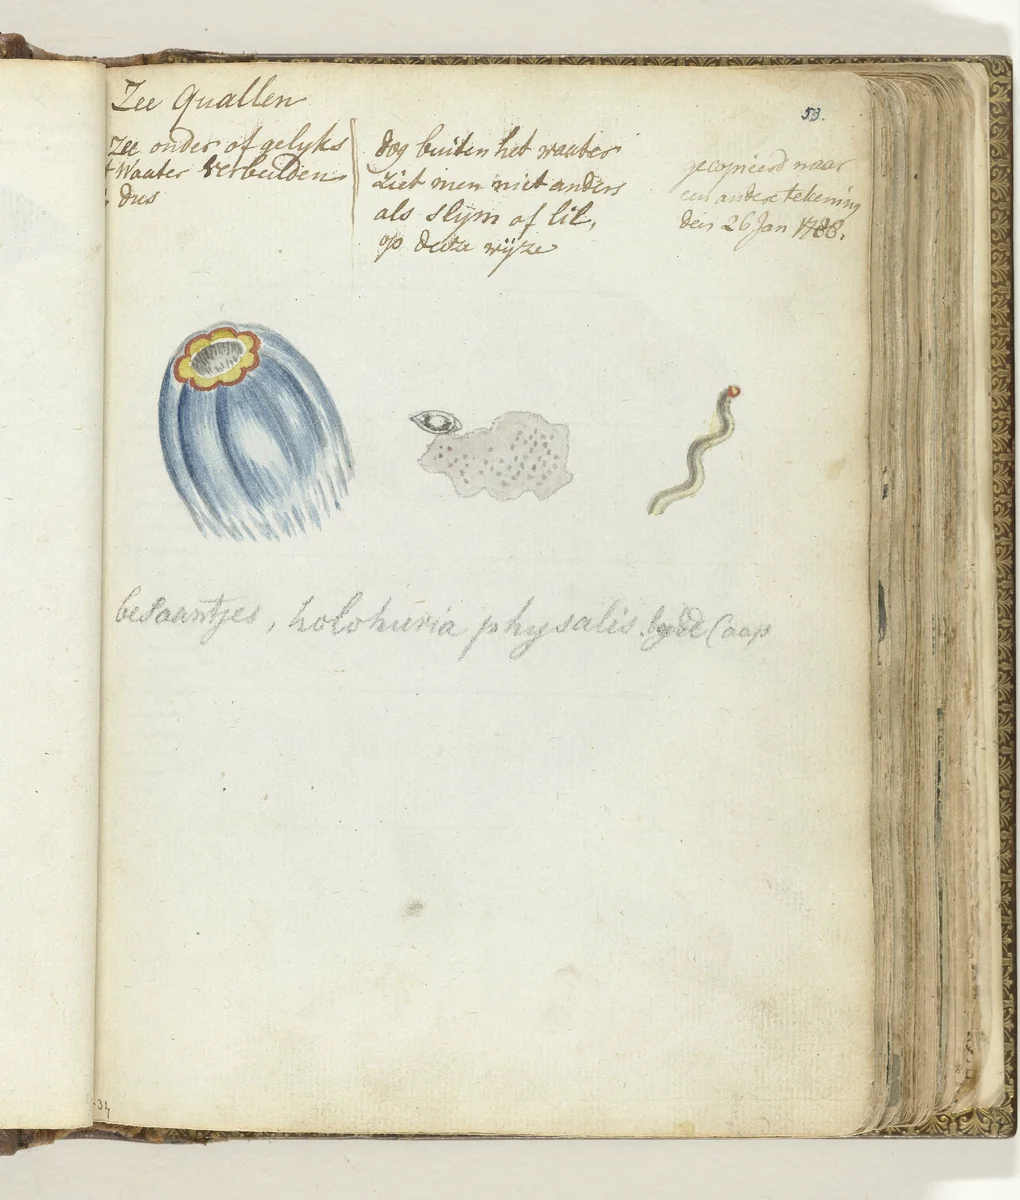 Zee Quallen
53.
Zee onder of gelyks
Waater Verbeelden
dus
dog buiten het waater
ziet men niet anders
als slym of lil,
op deeze wyze
gecopieerd naar
een andere tekening
den 26 Jan 1788.
besaantjes, holohuria physalis. by de Caap